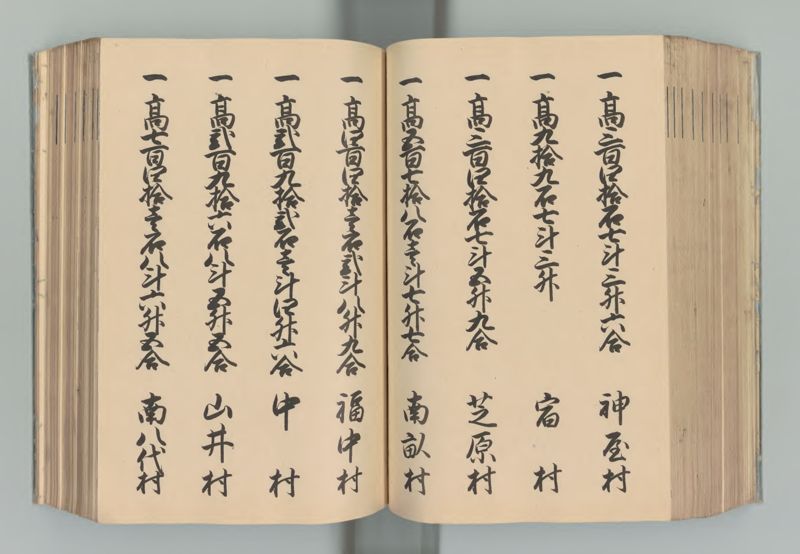 一 高三百四拾石七斗三升六合 神屋村
一 高九拾九石七斗三升 宿村
一 高三百四拾石七斗五升九合 芝原村
一 高五百七拾八石壱斗七升七合 南畝村
一 高四百四拾壱石弐斗八升九合 福中村
一 高弐百九拾弐石壱斗四升六合 中村
一 高弐百九拾六石八斗五升五合 山井村
一 高七百四拾壱石八斗六升五合 南八代村